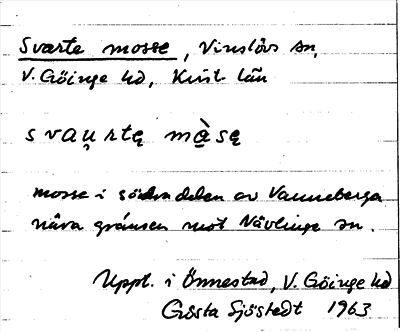 Svarte mosse, Vinslövs sn,
V. Göinge hd, Krist län
svau̯rtę mą̀sę
mosse i södra delen av Vanneberga
nära gränsen mot Nävlinge sn.
Uppt. i Önnestad, V. Göinge hd
Gösta Sjöstedt 1963